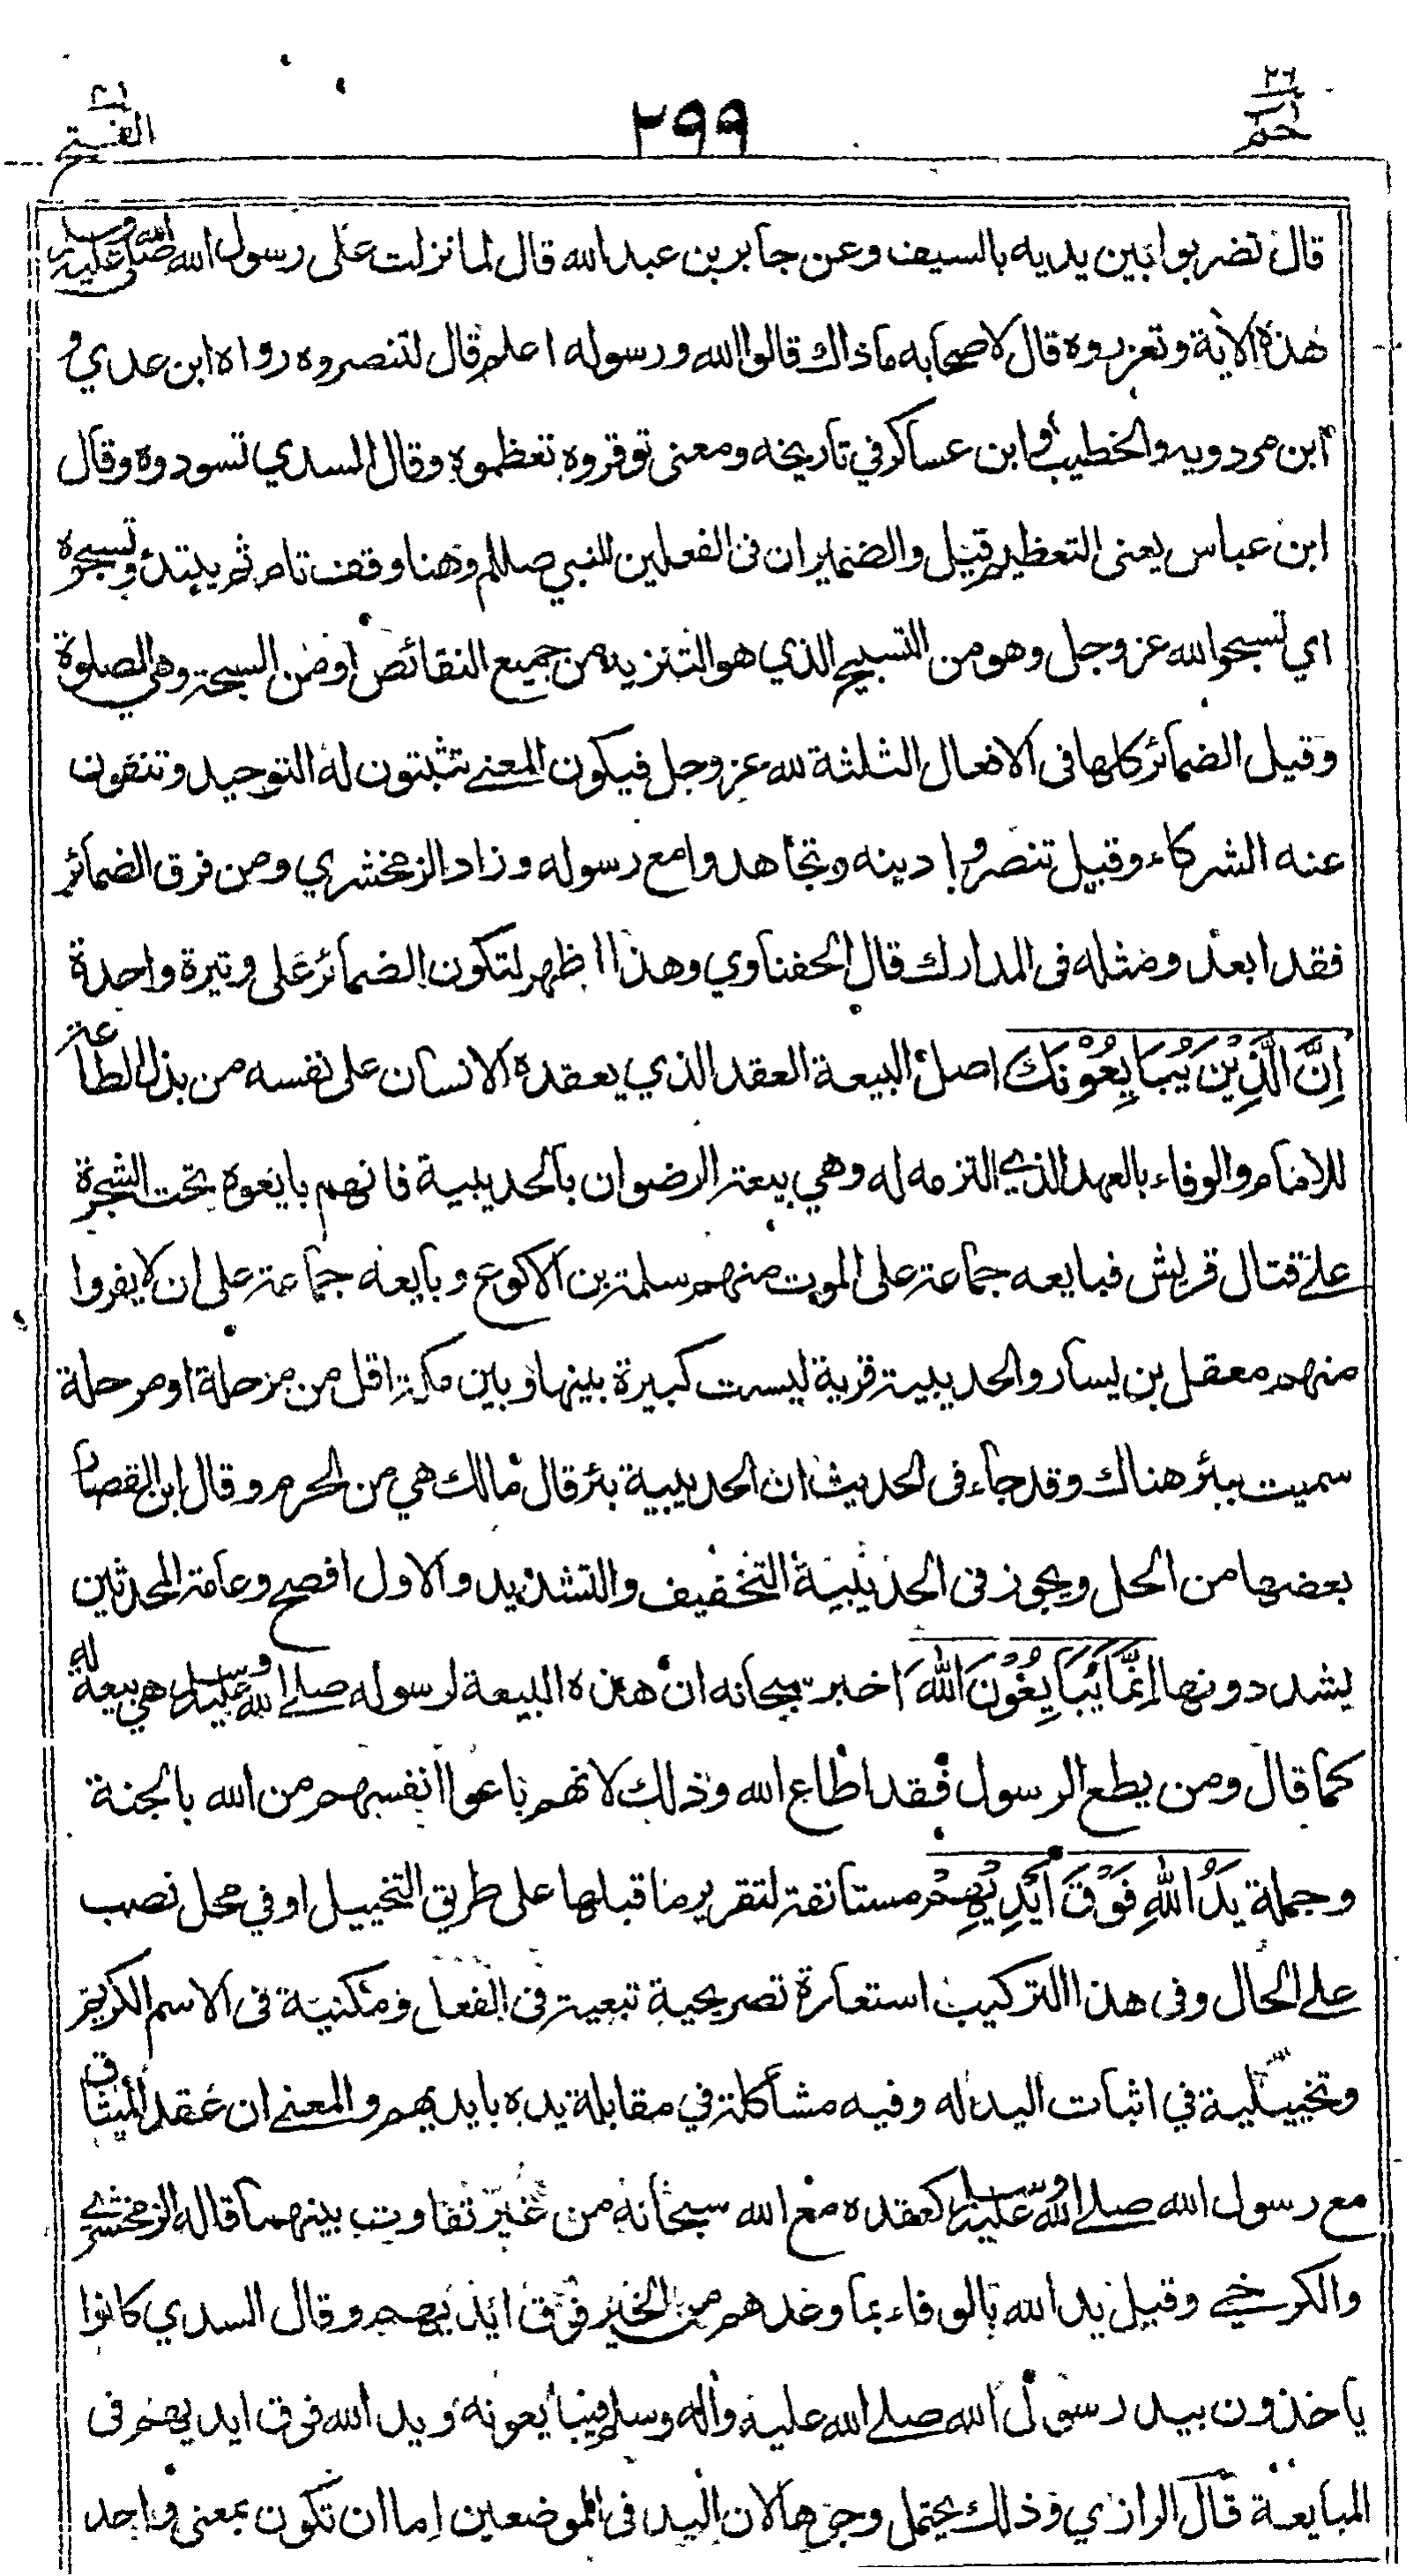 ٢٦
حم
٢٩٩
الفتح
قال تضربوا بين يديه بالسيف وعن جابر بن عبد الله قال لما نزلت على رسول الله صلى الله عليه وسلم
هذه الاية وتعزروه قال لاصحابه ما ذاك قالوا الله ورسوله اعلم قال لتنصروه رواه ابن عدي و
ابن مردويه والخطيب وابن عساكر في تاريخه ومعنى توقروه تعظموه وقال السدي تسودوه وقال
ابن عباس يعنى التعظيم قيل والضميران فى الفعلين للنبي صللم وهنا وقف تام ثم يبتدئ وتسبحوه
اي تسبحوا لله عز وجل وهو من التسبيح الذي هو التنزيه من جميع النقائص او من السبحة وهي الصلوة
وقيل الضمائر كلها فى الافعال الثلثة لله عز وجل فيكون المعنے تثبتون له التوحيد وتنفون
عنه الشركاء وقيل تنصروا دينه وتجاهدوا مع رسوله وزاد الزمخشري ومن فرق الضمائر
فقد ابعد ومثله فى المدارك قال الحفناوي وهذا اظهر لتكون الضمائر على وتيرة واحدة
اِنَّ الَّذِيْنَ يُبَايِعُوْنَكَ اصل البيعة العقد الذي يعقده الانسان على نفسه من بذل الطاعة
للامام والوفاء بالعهد الذي التزمه له وهي بيعة الرضوان بالحديبية فانهم بايعوه تحت الشجرة
علے قتال قريش فبايعه جماعة على الموت منهم سلمة بن الاكوع وبايعه جماعة على ان لا يفروا
منهم معقل بن يسار والحديبية قرية ليست كبيرة بينها وبين مكة اقل من مرحلة او مرحلة
سميت ببئر هناك وقد جاء فى الحديث ان الحديبية بئر قال مالك هي من الحرم وقال ابن القصار
بعضها من الحل ويجوز فى الحديبية التخفيف والتشديد والاول افصح وعامة المحدثين
يشددونها اِنَّمَا يُبَايِعُوْنَ اللهَ اخبر سبحانه ان هذه البيعة لرسوله صلے الله عليه وسلم هي بيعة له
كما قال ومن يطع الرسول فقد اطاع الله وذلك لانهم باعوا انفسهم من الله بالجنة
وجملة يَدُ اللهِ فَوْقَ اَيْدِيْهِمْ مستانفة لتقرير ما قبلها على طريق التخييل او في محل نصب
علے الحال وفى هذا التركيب استعارة تصريحية تبعية فى الفعل ومكنية فى الاسم الكريم
وتخييلية في اثبات اليد له وفيه مشاكلة في مقابلة يده بايديهم والمعنے ان عقد الميثاق
مع رسول الله صلے الله عليه وسلم كعقده مع الله سبحانه من غير تفاوت بينهما قاله الزمخشرے
والكرخے وقيل يد الله بالوفاء بما وعدهم من الخير فوق ايديهم وقال السدي كانوا
ياخذون بيد رسول الله صلے الله عليه واله وسلم فيبايعونه ويد الله فوق ايديهم فى
المبايعة قال الرازي وذلك يحتمل وجوها لان اليد فى الموضعين اما ان تكون بمعنى واحد